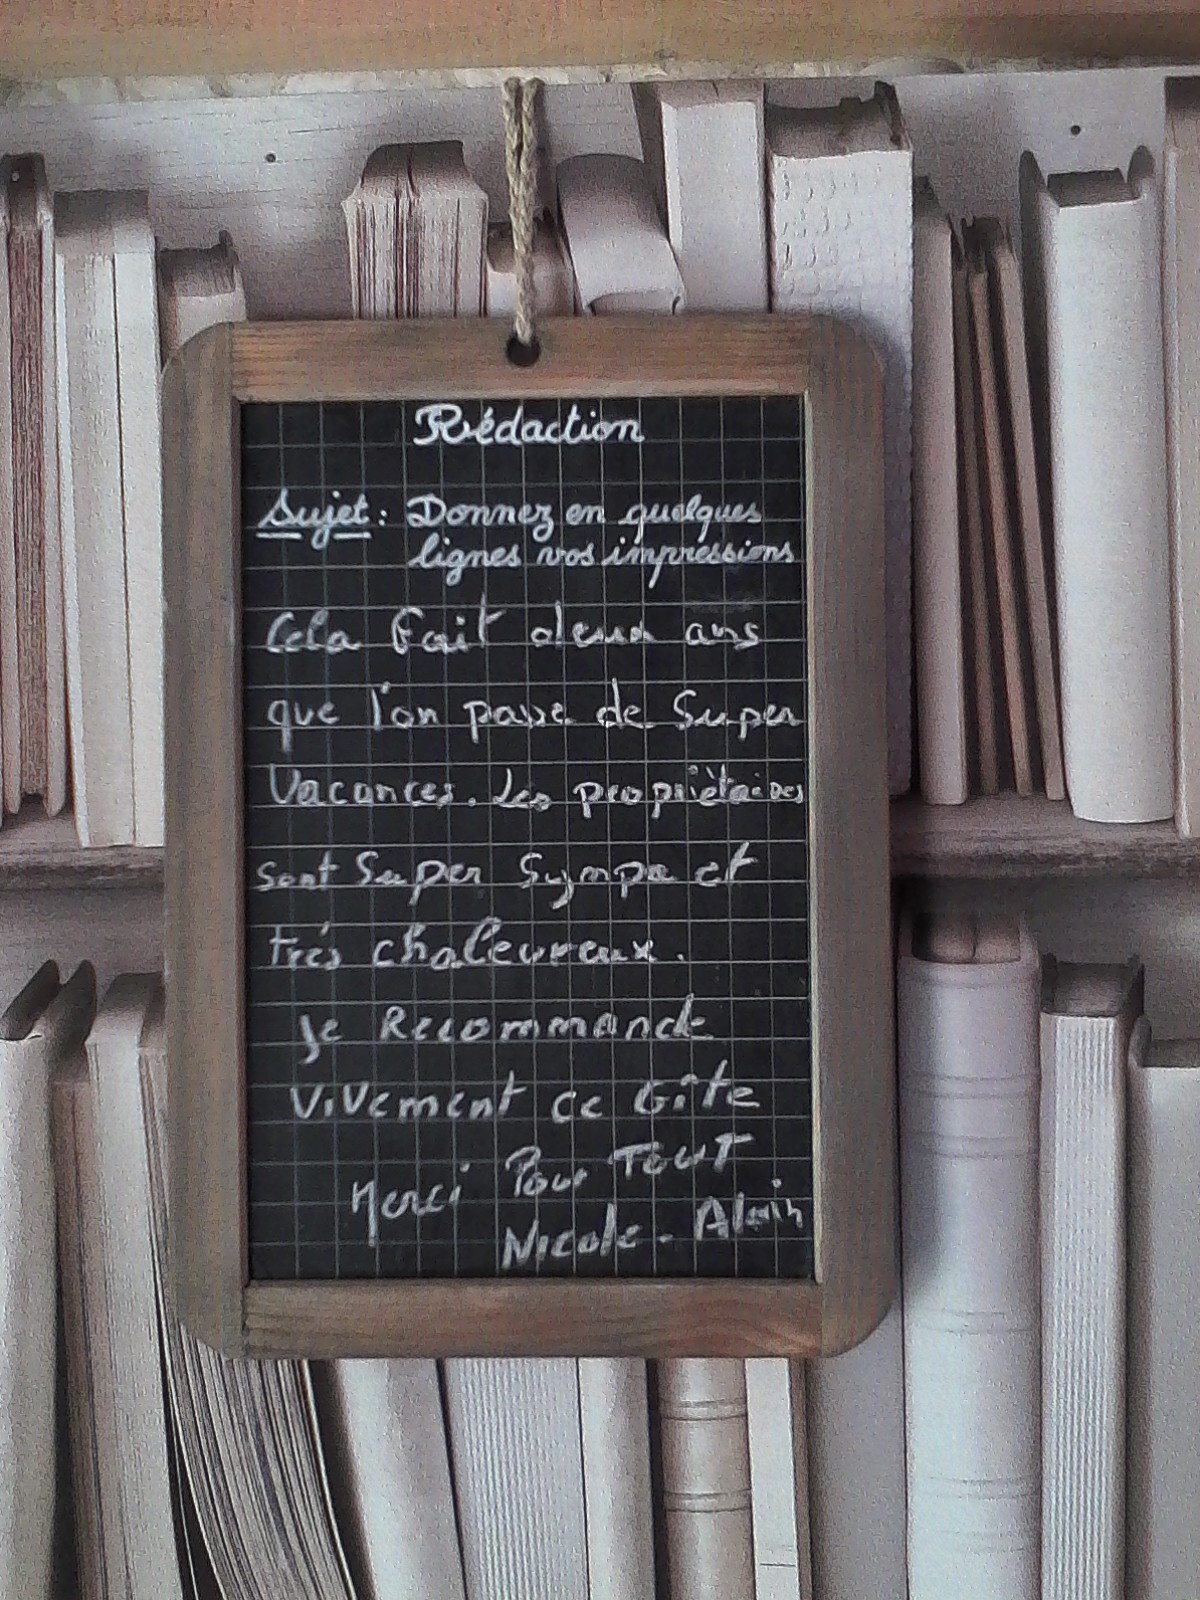 Rédaction
Sujet : Donnez en quelques
lignes vos impressions
Cela fait deux ans
que l'on passe de Super
Vacances. Les propriétaires
sont Super Sympa et
trés chaleureux.
Je Recommande
ViVement ce Gîte
Merci Pour TOUT
Nicole - Alain